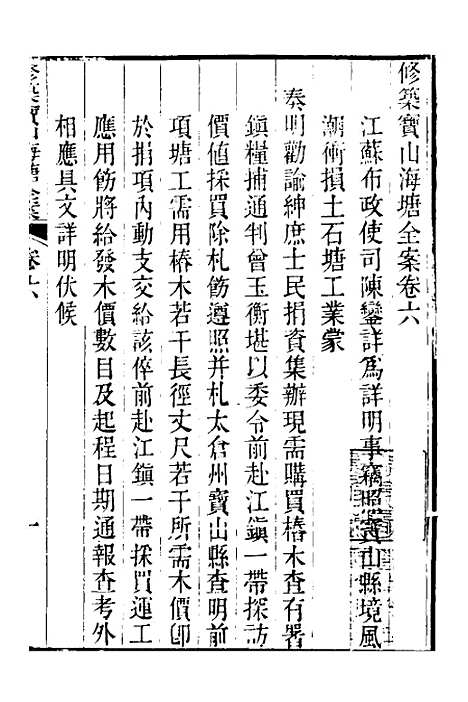 修築寶山海塘全案卷六
江蘇布政使司陳鑾詳爲詳明事竊照寶山縣境風
潮衝損土石塘工業蒙
奏明勸諭紳庶士民捐資集辦現需購買樁木查有署
鎮糧捕通判曾玉衡堪以委令前赴江鎮一帶探訪
價值採買除札飭遵照并札太倉州寶山縣查明前
項塘工需用樁木若干長徑丈尺若干所需木價卽
於捐項內動支交給該倅前赴江鎮一帶採買運工
應用飭將給發木價數目及起程日期通報查考外
相應具文詳明伏候
修築寶山海塘全案
卷六
一